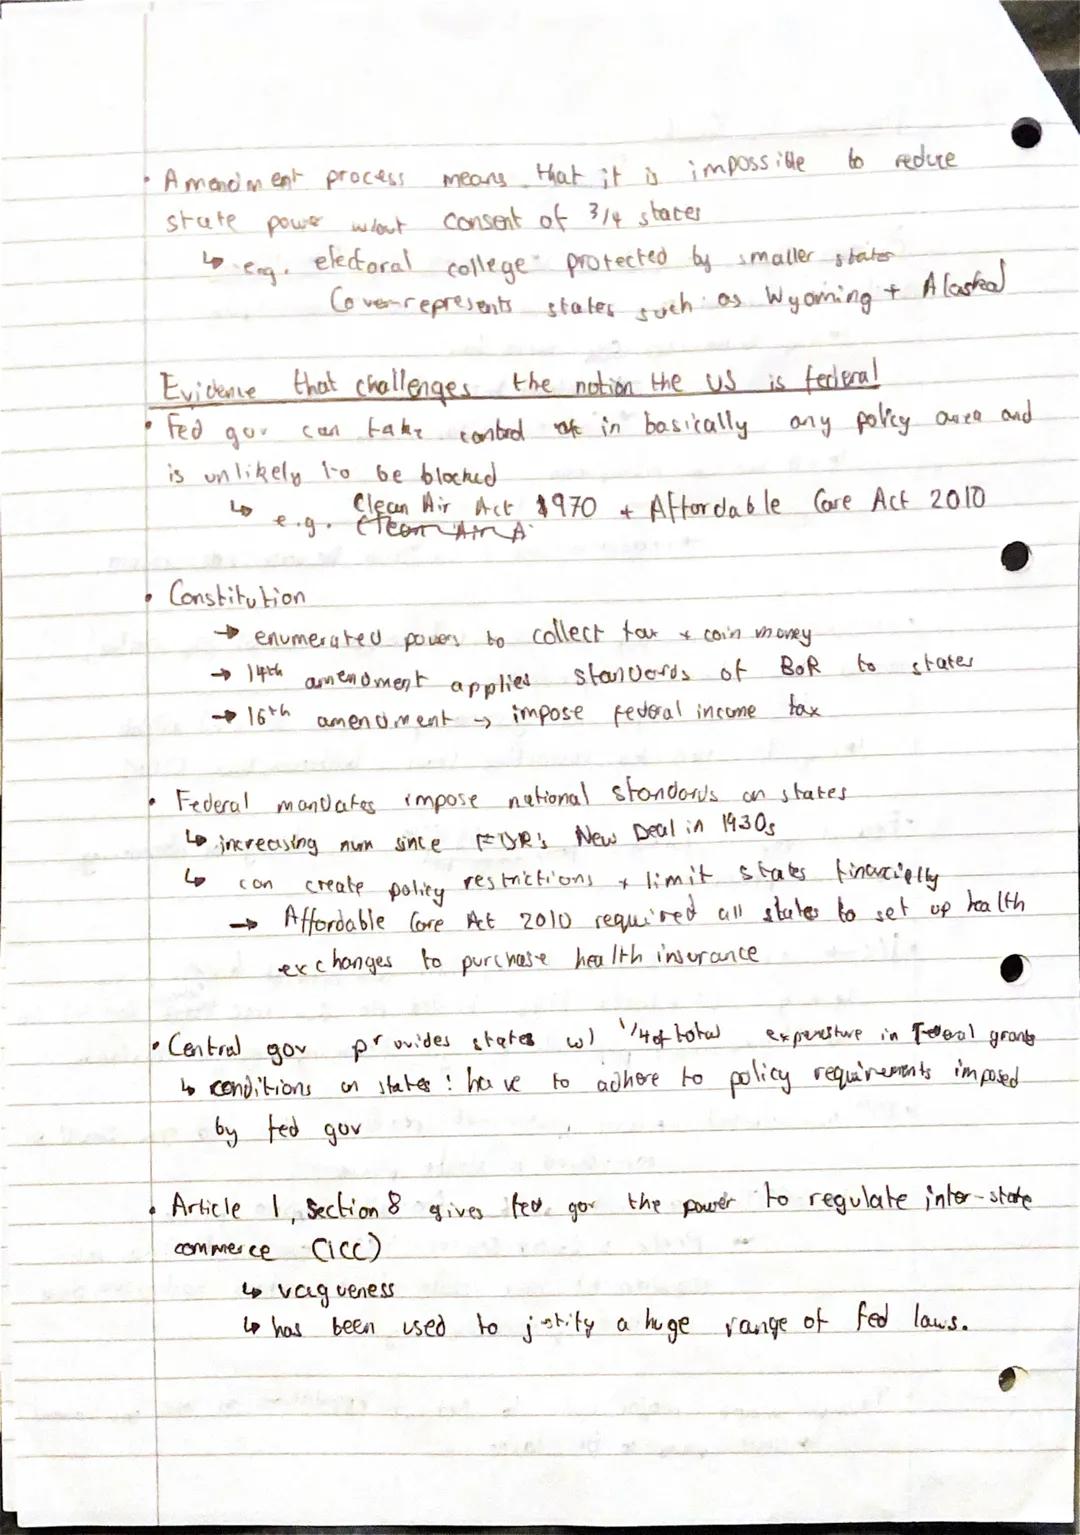 • Amendment process means that it is impossible to reduce
state power w/out consent of 3/4 states
↳ e.g. electoral college protected by smaller states
(over-represents states such as Wyoming + Alaska)
Evidence that challenges the notion the US is federal
• Fed gov can take control in basically any policy area and
is unlikely to be blocked
↳ e.g. Clean Air Act 1970 + Affordable Care Act 2010
Clean Air A
• Constitution
→ enumerated powers to collect tax + coin money
→ 14th amendment applies standards of BoR to states
→ 16th amendment → impose federal income tax
• Federal mandates impose national standards on states
↳ increasing num since FDR's New Deal in 1930s
↳ can create policy restrictions + limit states financially
→ Affordable Care Act 2010 required all states to set up health
exchanges to purchase health insurance
• Central gov provides states w/ 1/4 of total expenditure in Federal grants
↳ conditions on states: have to adhere to policy requirements imposed
by fed gov
• Article 1, Section 8 gives fed gov the power to regulate inter-state
commerce (ICC)
↳ vagueness
↳ has been used to justify a huge range of fed laws.